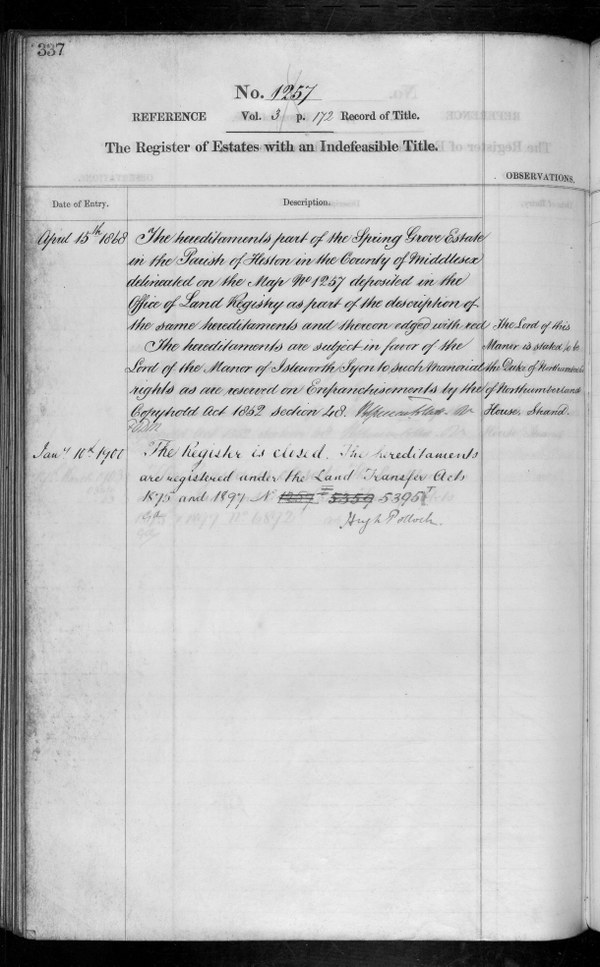 337
No. 1257
REFERENCE Vol. 3 p. 172 Record of Title.
The Register of Estates with an Indefeasible Title.
OBSERVATIONS.
Date of Entry.
Description.
April 15th 1868
The hereditaments part of the Spring Grove Estate
in the Parish of Heston in the County of Middlesex
delineated on the Map No 1257 deposited in the
Office of Land Registry as part of the description of
the same hereditaments and thereon edged with red
The hereditaments are subject in favor of the
Lord of the Manor of Isleworth Syon to such Manorial
rights as are reserved on Enfranchisements by the
Copyhold Act 1852 section 48.
The Lord of this
Manor is stated to be
the Duke of Northumberland
of Northumberland
House, Strand.
Jany 10th 1900
The Register is closed. The hereditaments
are registered under the Land Transfer Acts
1875 and 1897 No 1257 5359 5395
Hugh Pollock.